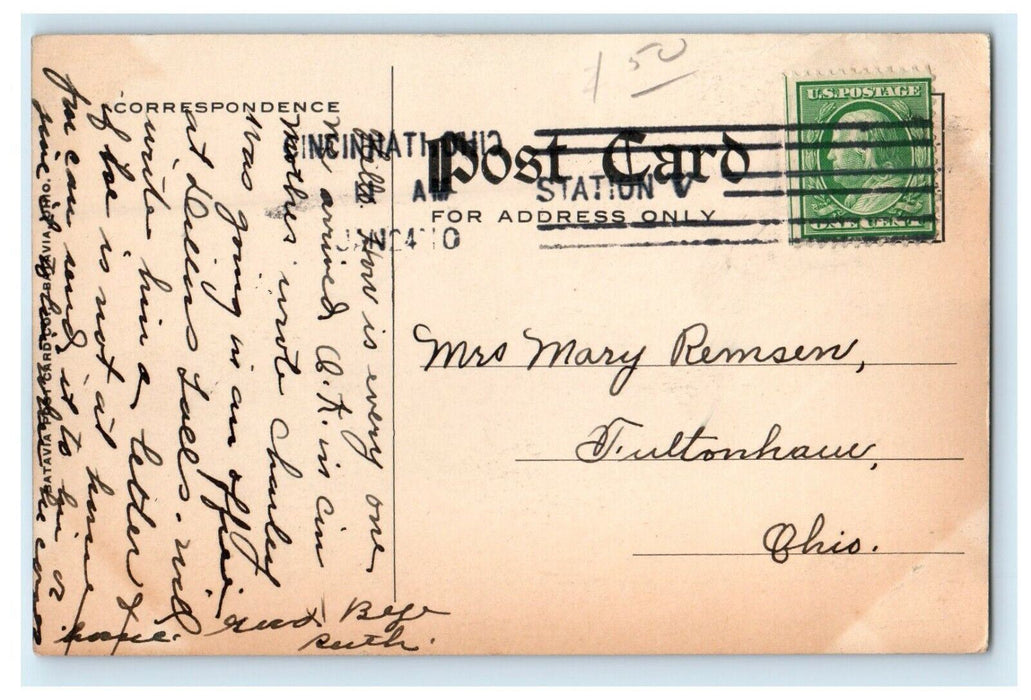 1.50
CORRESPONDENCE
U.S. POSTAGE
ONE CENT
CINCINNATI. OHIO
AM
JAN 24 '10
STATION V
Post Card
FOR ADDRESS ONLY
Mrs Mary Remsen,
Fultonham,
Ohio.
Hello. How is every one
arrived O.K. in Cin
Mother wrote Charley
was going in an office
at Dellins Falls. will
write him a letter &
if he is not at home
you can send it to him or
give it to him when he comes
home. Good Bye
Ruth.
BATAVIA POST CARD CO. BATAVIA, OHIO.